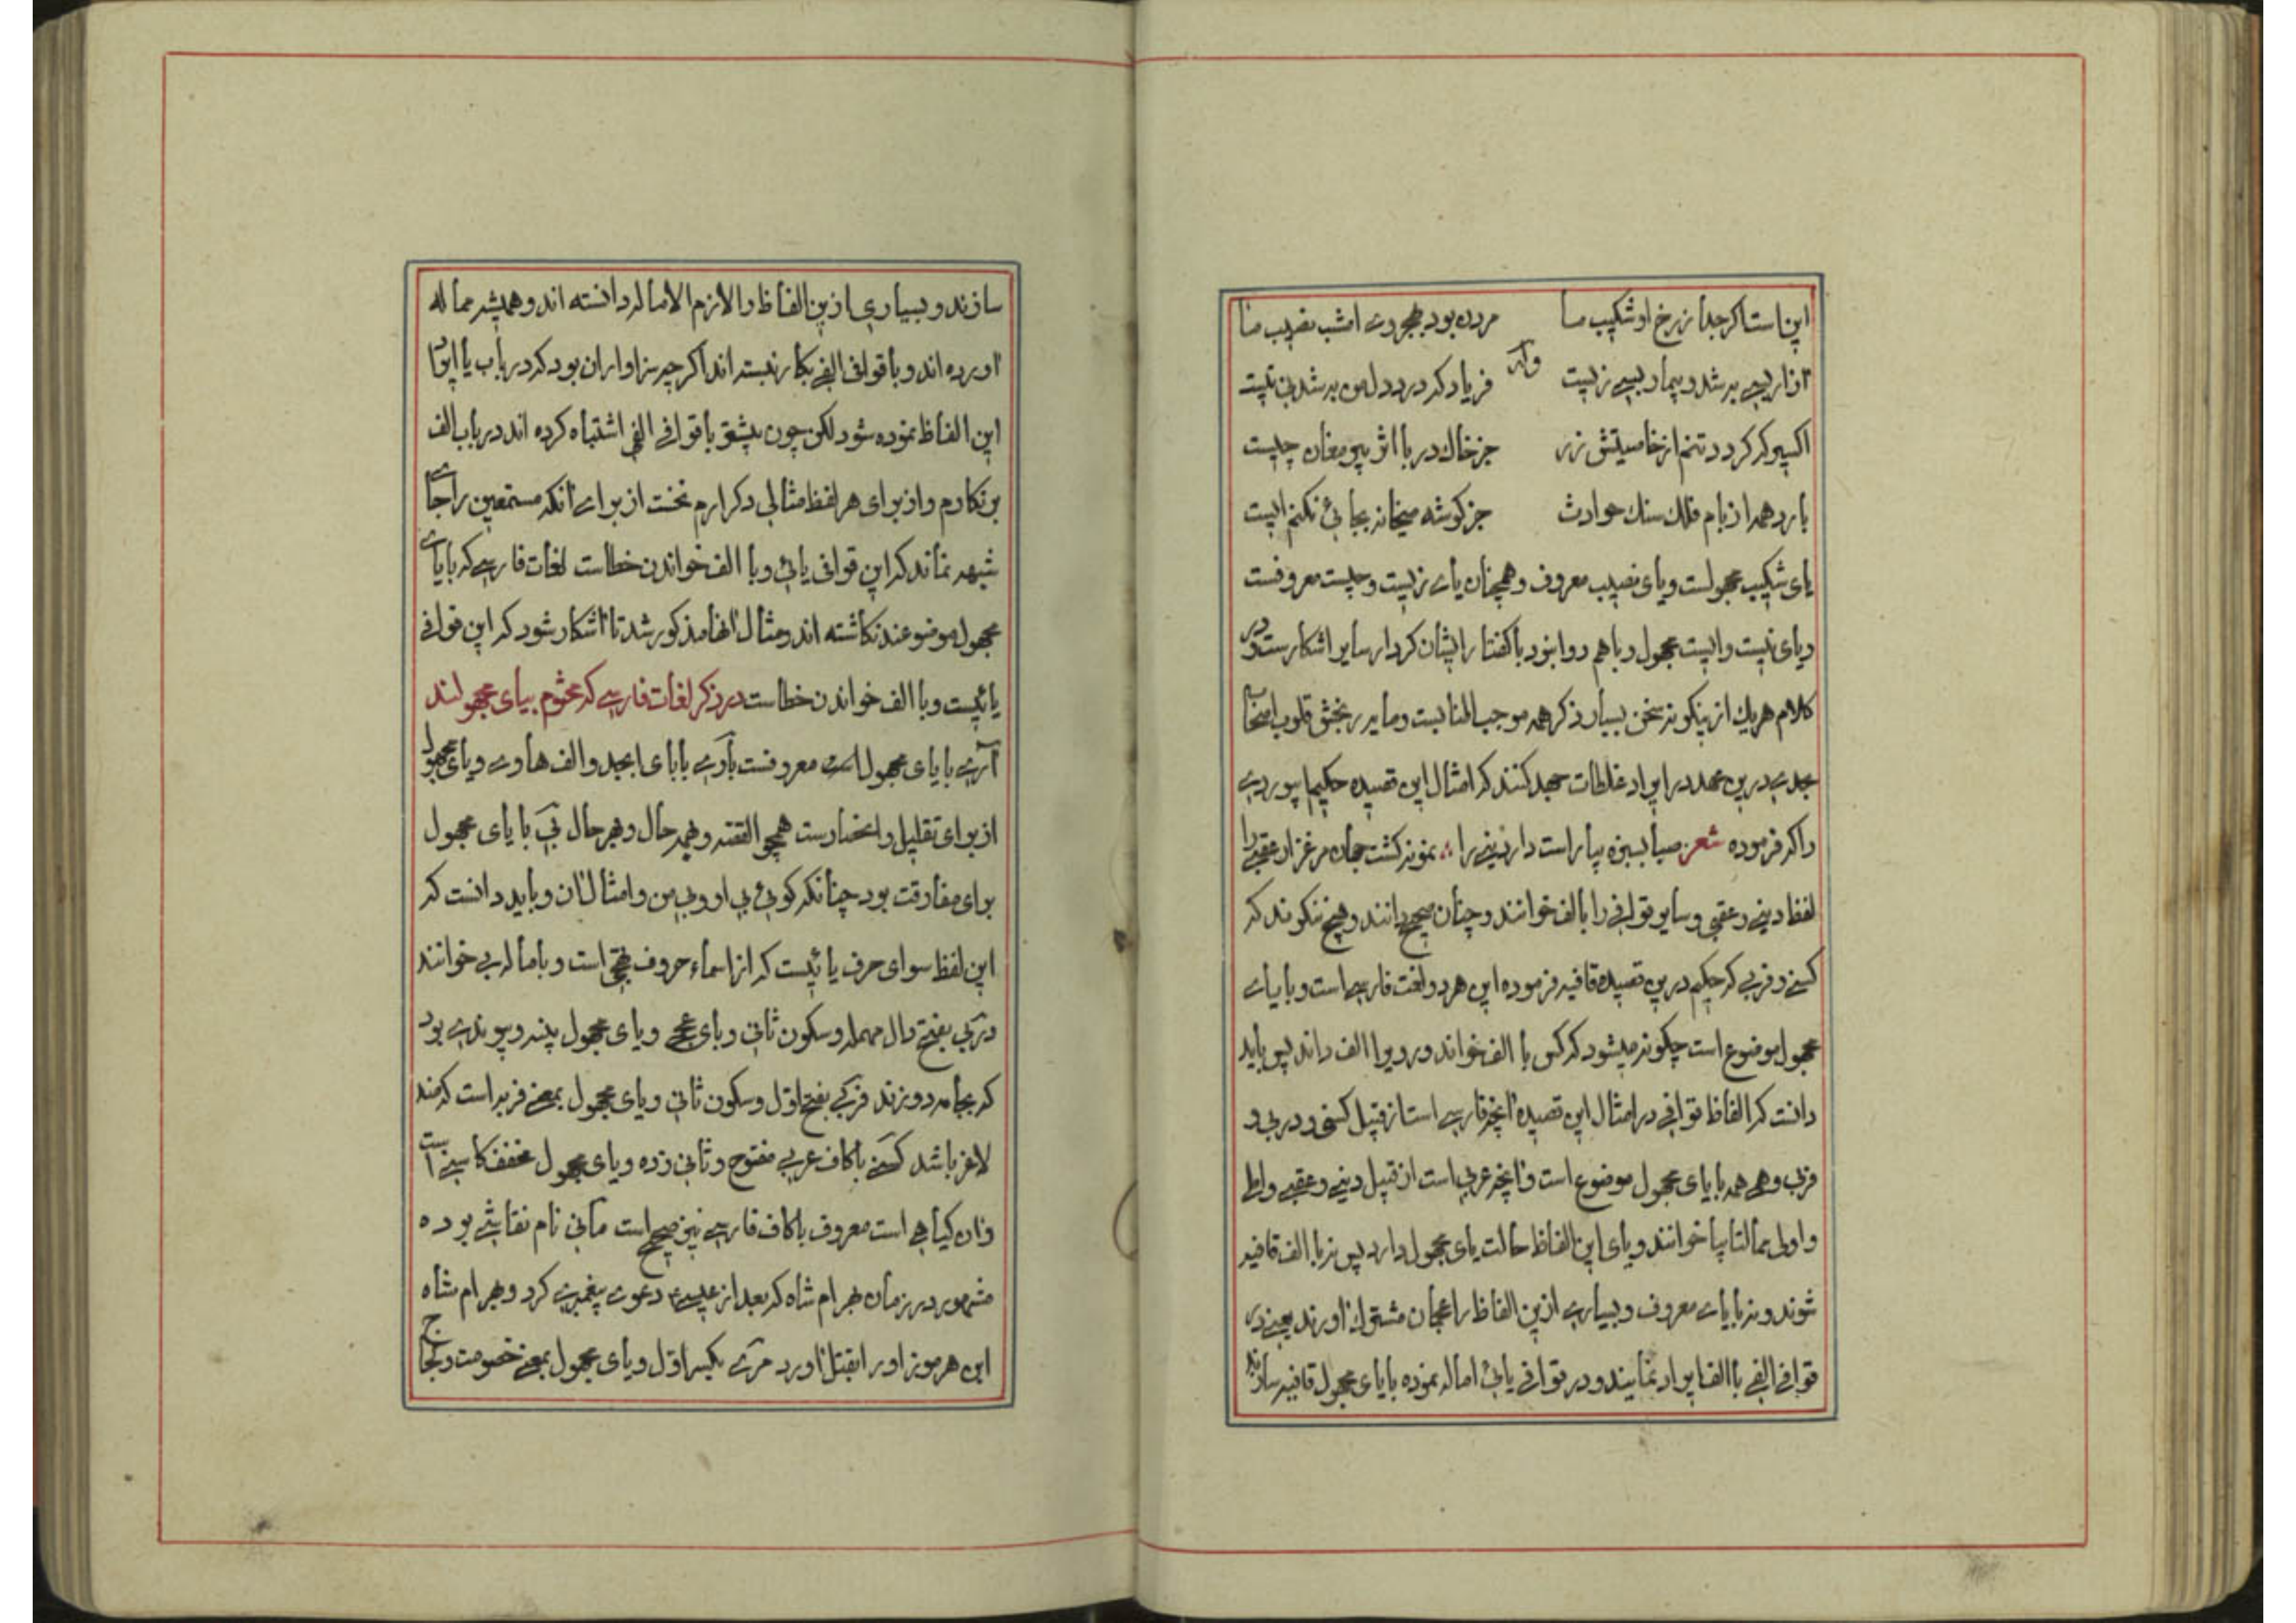 این است اگر جدا ز رخ او شکیب ما مردن بود بهجر وی امشب نصیب ما
وله
از ما بسی به شد و بیمار بسی زیست فریاد که درد دل من به شدنی نیست
اکسیر که کردد تنم از خاصیتش زر جز خاک در با اثر پیر مغان چیست
بارد همه از بام فلک سنک حوادث جز کوشه میخانه بجائی نکنم ایست
یای شکیب مجهولست و یای نصیب معروف و همچنان یای زیست و چیست معروفست
و یای نیست و ایست مجهول و با هم روا نبود با کفتار ایشان کردار سایر اشکارست و در
کلام هر یک از ینکونه سخن بسیار ذکر همه موجب اطنابست و مایه رنجش قلوب اصحاب
جدی درین عهد در ایراد غلطات جهد کنند که امثال این قصیده حکیم ابیوردی
را که فرموده شعر صبا بسبزه بیاراست دار دنیی را نمونه کشت جهان مرغزار عقبی را
لفظ دینی و عقبی و سایر قوافی را با الف خوانند و چنان صحیح دانند و هیچ نکویند که
کسنی و فربی که حکیم درین قصیده قافیه فرموده این هر دو لغت فارسی است و با یای
مجهول موضوع است چکونه میشود که کس با الف خواند و روی را الف داند پس باید
دانست که الفاظ قوافی در امثال این قصیده آنچه فارسی است از قبیل کسنی و دربی و
فربی و هی همه با یای مجهول موضوع است و آنچه عربی است از قبیل دینی و عقبی و املی
و اولی ممالتا بیا خوانند و یای این الفاظ حالت یای مجهول دارد پس نه با الف قافیه
شوند و نه با یای معروف و بسیاری ازین الفاظ را عجمان مشترک آورند یعنی در
قوافی الفی با الف ایراد نمایند و در قوافی یائی اماله نموده با یای مجهول قافیه سازند
سازند و بسیاری ازین الفاظ را لازم الاماله دانسته اند و همیشه مماله
آورده اند و با قوافی الفی بکار نبسته اند اکرچه سزاوار آن بود که در باب یا ایراد
این الفاظ نموده شود لکن چون بیشتر با قوافی الفی اشتباه کرده اند در باب الف
برنکارم و از برای هر لفظ مثالی ذکر آرم نخست از برای آنکه مستمعین را جای
شبهه نماند که این قوافی یائی و با الف خواندن خطاست لغات فارسی که با یای
مجهول موضوعند نکاشته اند و مثال آنها مذکور شد تا آشکار شود که این قوافی
یائیست و با الف خواندن خطاست در ذکر لغات فارسی که مختوم بیای مجهولند
آری با یای مجهول است معروفست باری با بای ابجد و الف هاوی و یای مجهول
از برای تقلیل و اختصارست همچو القصه و بهمه حال و بهر حال بی با یای مجهول
برای مفارقت بود چنانکه کوئی بی او و بی من و امثال آن و باید دانست که
این لفظ سوای حرف یائیست که از اسماء حروف تهجی است و باماله بی خوانند
دربی بفتح دال مهمله و سکون ثانی و بای عجمی و یای مجهول پینه و پیوندی بود
که بجامه دوزند فربی بفتح اول و سکون ثانی و یای مجهول بمعنی فربه است که ضد
لاغر باشد کسنی با کاف عربی مفتوح و ثانی زده و یای مجهول مخفف کاسنی است
و آن کیاهی است معروف با کاف فارسی نیز صحیح است مانی نام نقاشی بوده
مشهور در زمان بهرام شاه که بعد از عیسی ع دعوی پیغمبری کرد و بهرام شاه
ابن هرمز او را بقتل آورد مری بکسر اول و یای مجهول بمعنی خصومت و لجاج